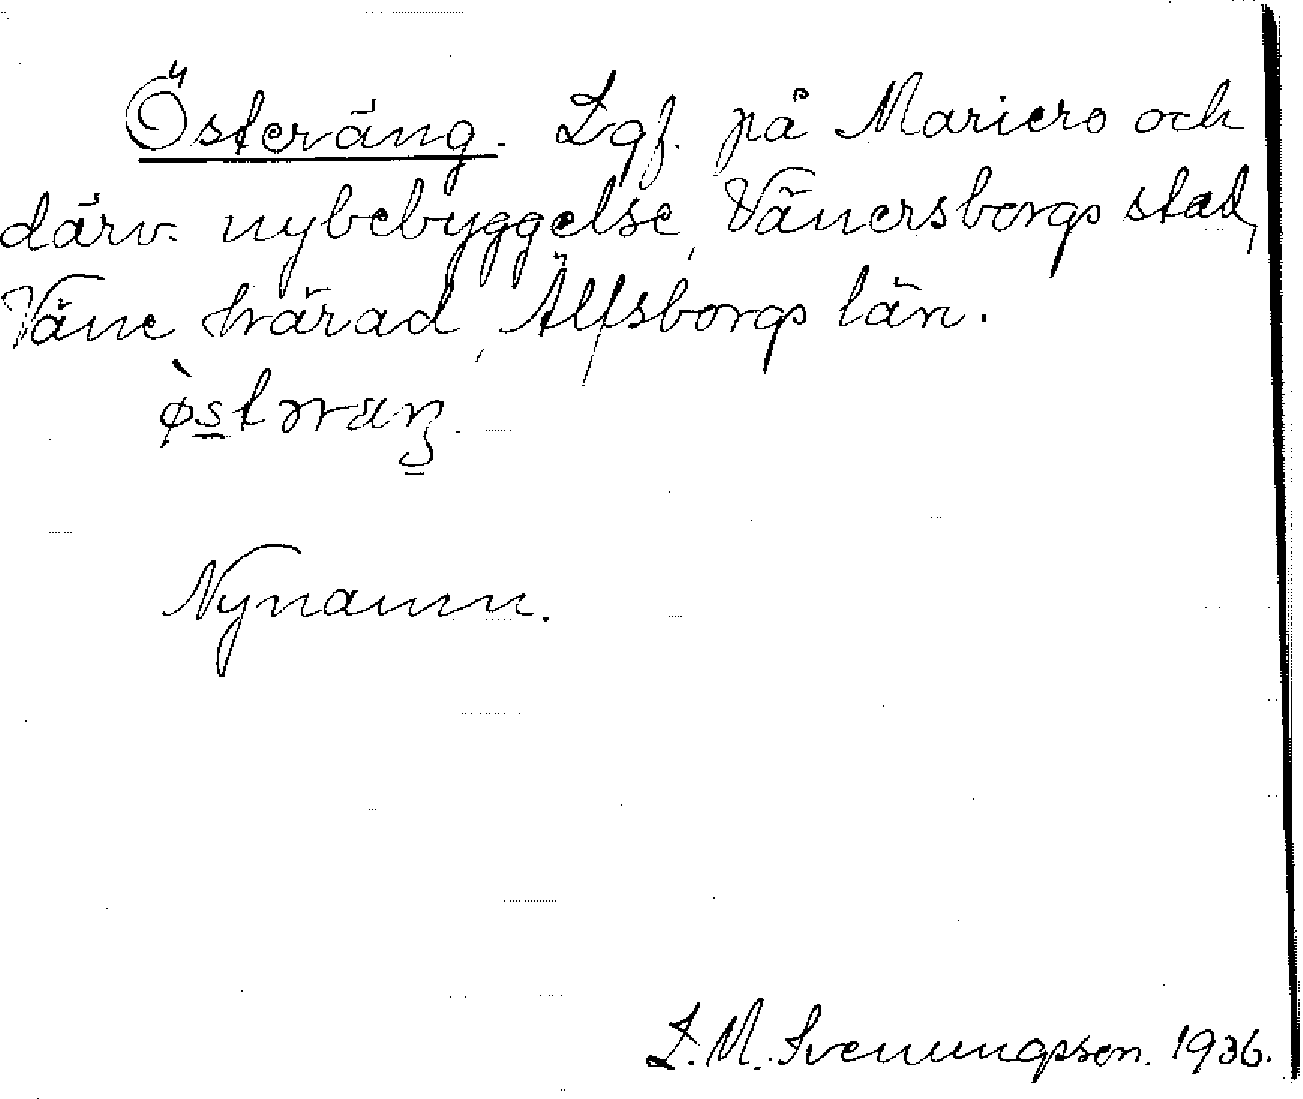 Österäng. Lgf. på Mariero och
därv. nybebyggelse, Vänersborgs stad,
Väne härad, Älfsborgs län.
ø̀stəräŋ.
Nynamn.
L. M. Svenungsson. 1936.